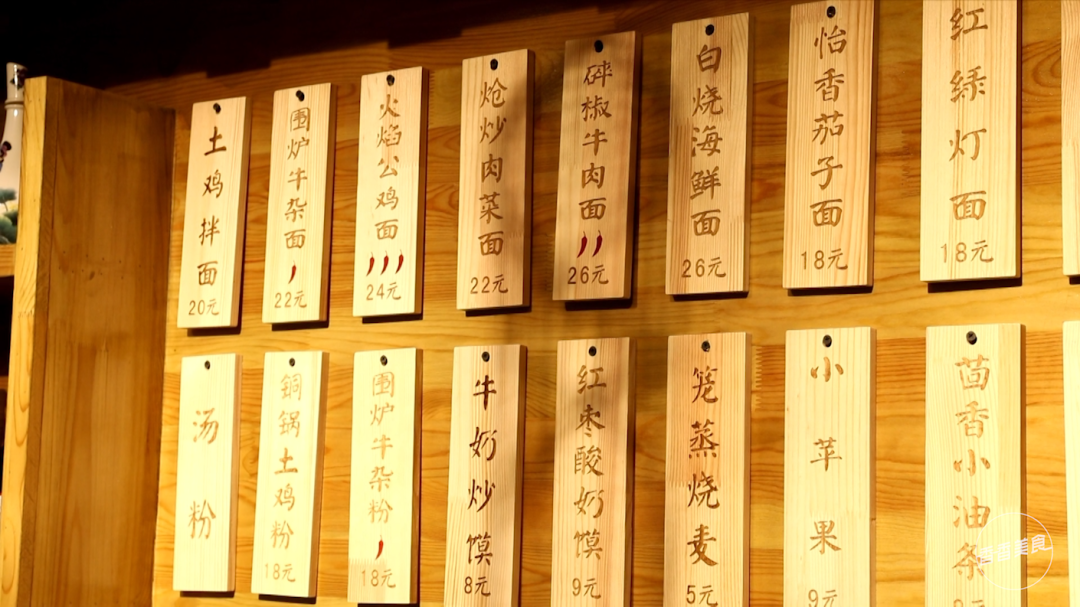 土鸡拌面
20元
围炉牛杂面
22元
火焰公鸡面
24元
炝炒肉菜面
22元
碎椒牛肉面
26元
白烧海鲜面
26元
怡香茄子面
18元
红绿灯面
18元
汤粉
铜锅土鸡粉
18元
围炉牛杂粉
18元
牛奶炒馍
8元
红枣酸奶馍
9元
笼蒸烧麦
5元
小苹果
9元
茴香小油条
美食